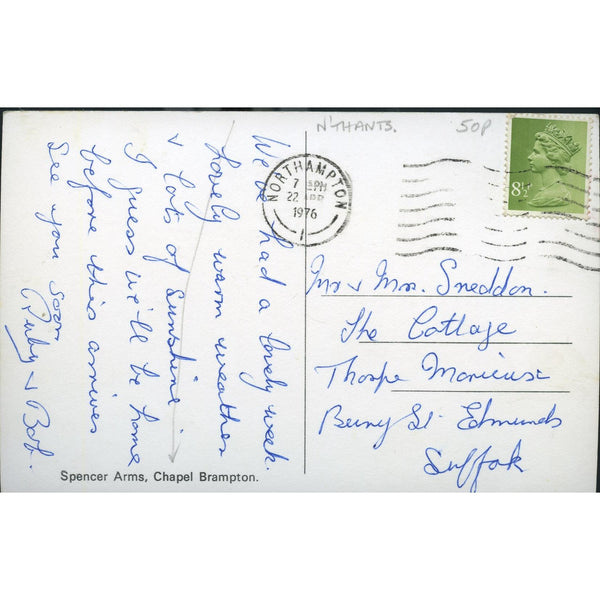 N'THANTS.
50P
8½
NORTHAMPTON
7 PM
22 APR
1976
We've had a lovely week.
Lovely warm weather
& lots of sunshine
I guess we'll be home
before this arrives
See you soon
Ruby & Bob.
Mr & Mrs. Sneddon.
The Cottage
Thorpe Morieux
Bury St. Edmunds
Suffolk
Spencer Arms, Chapel Brampton.